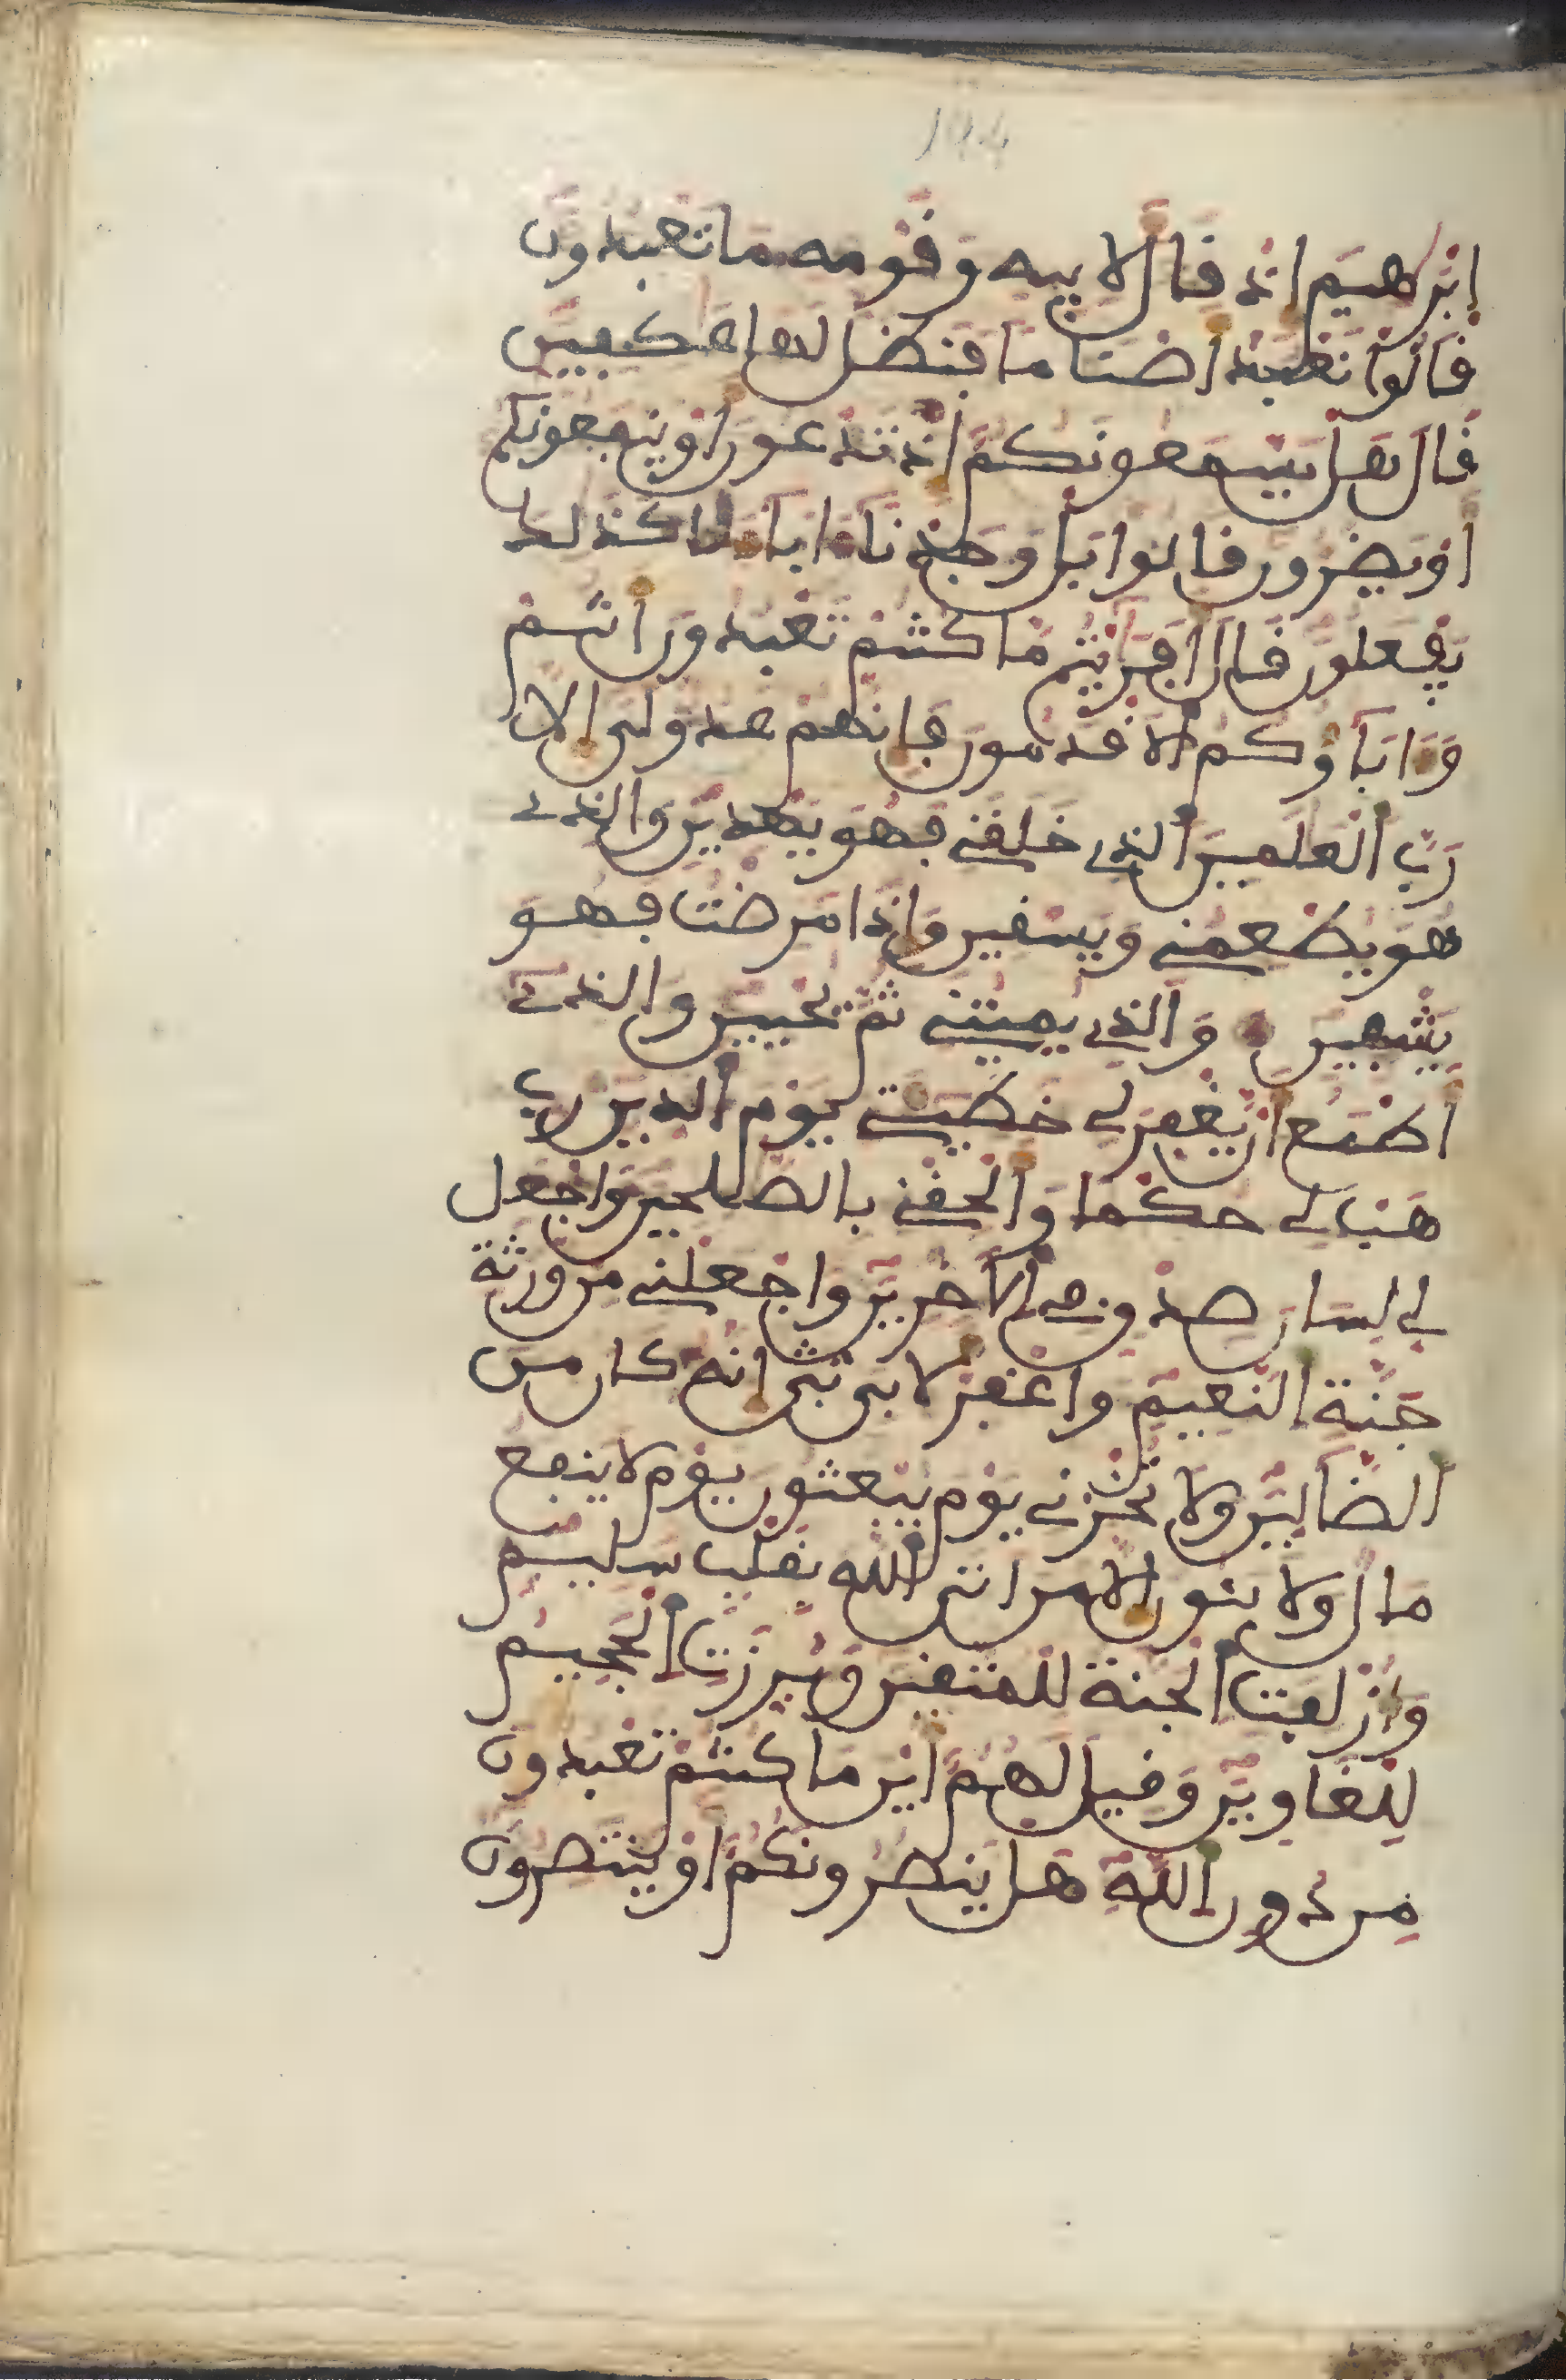 إبرهيم إذ قال لأبيه وقومه ما تعبدون
قالوا نعبد أصناما فنظل لها عكفين
قال هل يسمعونكم إذ تدعون أو ينفعونكم
أو يضرون قالوا بل وجدنا ءاباءنا كذلك
يفعلون قال أفريتم ما كنتم تعبدون أنتم
وءاباؤكم الأقدمون فإنهم عدو لي إلا
رب العلمين الذي خلقني فهو يهدين والذي
هو يطعمني ويسقين وإذا مرضت فهو
يشفين والذي يميتني ثم يحيين والذي
أطمع أن يغفر لي خطيئتي يوم الدين رب
هب لي حكما وألحقني بالصلحين واجعل
لي لسان صدق في الأخرين واجعلني من ورثة
جنة النعيم واغفر لأبي إنه كان من
الضالين ولا تخزني يوم يبعثون يوم لا ينفع
مال ولا بنون إلا من أتى الله بقلب سليم
وأزلفت الجنة للمتقين وبرزت الجحيم
للغاوين وقيل لهم أين ما كنتم تعبدون
من دون الله هل ينصرونكم أو ينتصرون